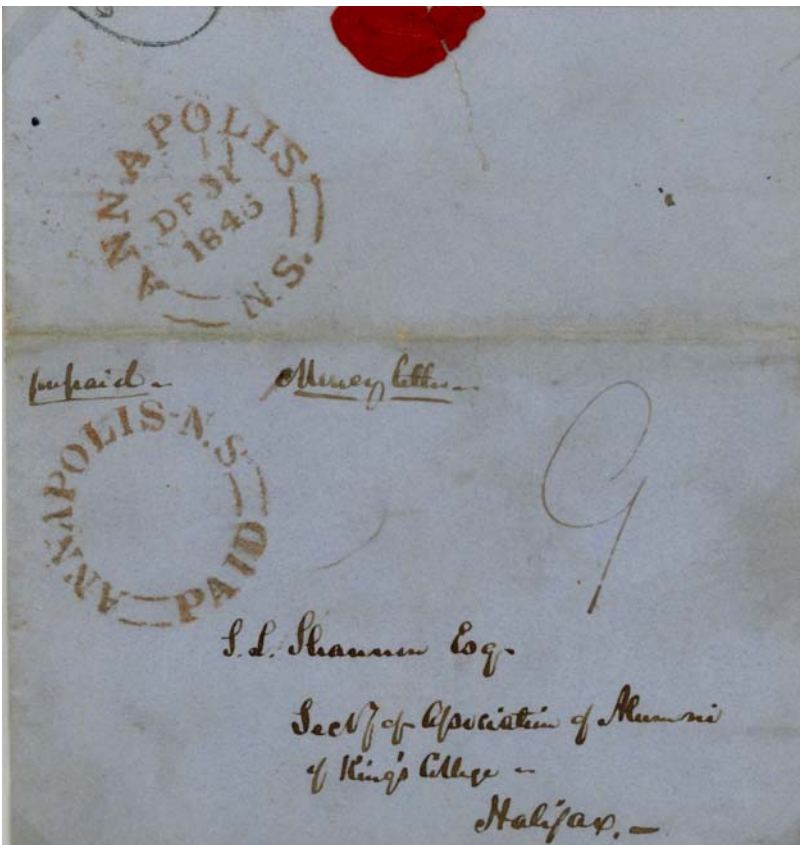 ANNAPOLIS
DE 31
1846
N.S.
prepaid Money letter
ANNAPOLIS·N.S
PAID
9
S. L. Shannon Esq.
Secty of Association of Alumni
of King's College
Halifax.